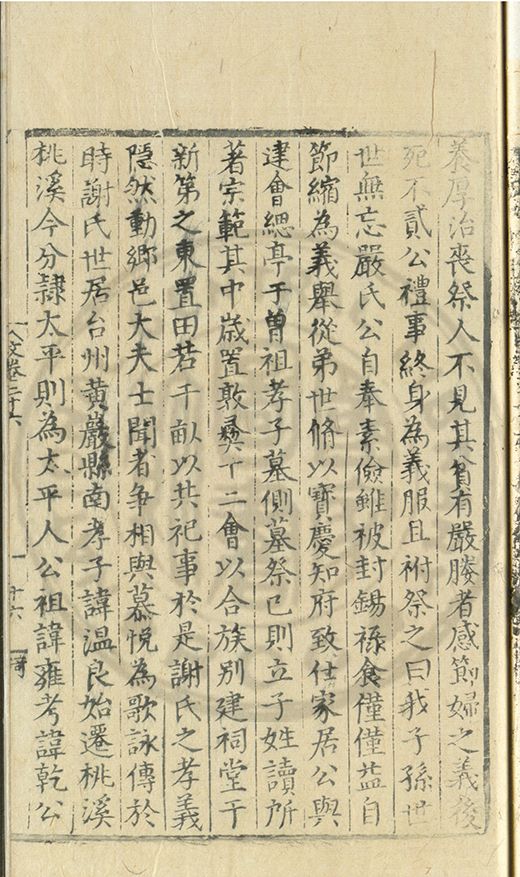 養厚治喪祭人不見其貧有嚴媵者感節婦之義後
死不貳公禮事終身為義服且祔祭之曰我子孫世
世無忘嚴氏公自奉素儉雖被封錫祿食僅僅益自
節縮為義舉從弟世脩以寶慶知府致仕家居公與
建會緦亭于曾祖孝子墓側墓祭已則立子姓讀所
著宗範其中歲置敦彝十二會以合族别建祠堂于
新第之東置田若千畝以共祀事於是謝氏之孝義
隱然動鄉邑大夫士聞者争相與慕悅為歌詠傳於
時謝氏世居台州黃巖縣南孝子諱温良始遷桃溪
桃溪今分隷太平則為太平人公祖諱雍考諱乾公
文卷二十六
十六